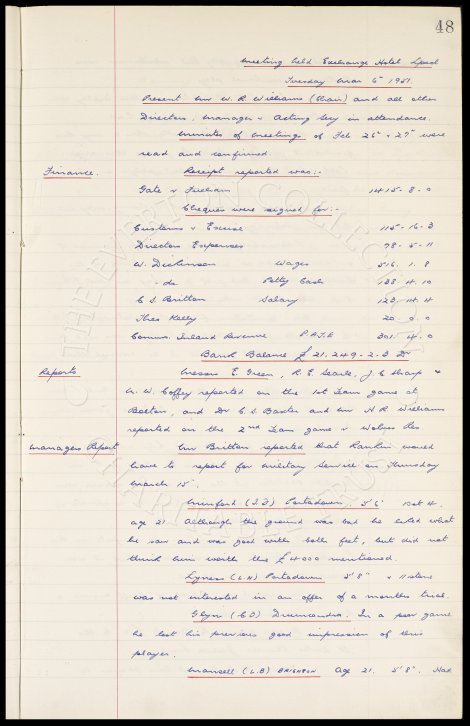 48
Meeting held Exchange Hotel Lpool
Tuesday Mar 6th 1951.
Present Mr W. R. Williams (Chair) and all other
Directors, Manager & Acting Secy in attendance.
Minutes of meetings of Feb 26th & 27th were
read and confirmed.
Finance. Receipt reported was:-
Gate v Fulham 1415-8-0
Cheques were signed for:-
Customs & Excise 115-16-3
Directors Expenses 78-5-11
W. Dickinson Wages 516.1.8
- do Petty Cash 133.4.10
C S Britton Salary 123.14.4
Theo Kelly 20.0.0
Commrs. Inland Revenue P.A.Y.E 301.4.0
Bank Balance £21,249-2-3 Dr
Reports Messrs E. Green, R. E. Searle, J. C Sharp &
W. W. Coffey reported on the 1st Team game at
Bolton, and Dr C. S. Baxter and Mr A R Williams
reported on the 2nd Team game v Wolves Res
Managers Report Mr Britton reported that Rankin would
have to report for Military Service on Thursday
March 15th.
Mumford (I.F) Portadown. 5'6"
age 21 Although the ground was bad he liked what
he saw and was good with both feet, but did not
think him worth the £4000 mentioned.
Lyness (L.H) Portadown 5'8" & 11 stone
was not interested in an offer of a months trial.
Glyn (C.F) Drumcondra. In a poor game
he lost his previous good impression of this
player.
Mansell (L.B) BRIGHTON Age 21. 5'8". Had
THE EVERTON COLLECTION
CHARITABLE TRUST